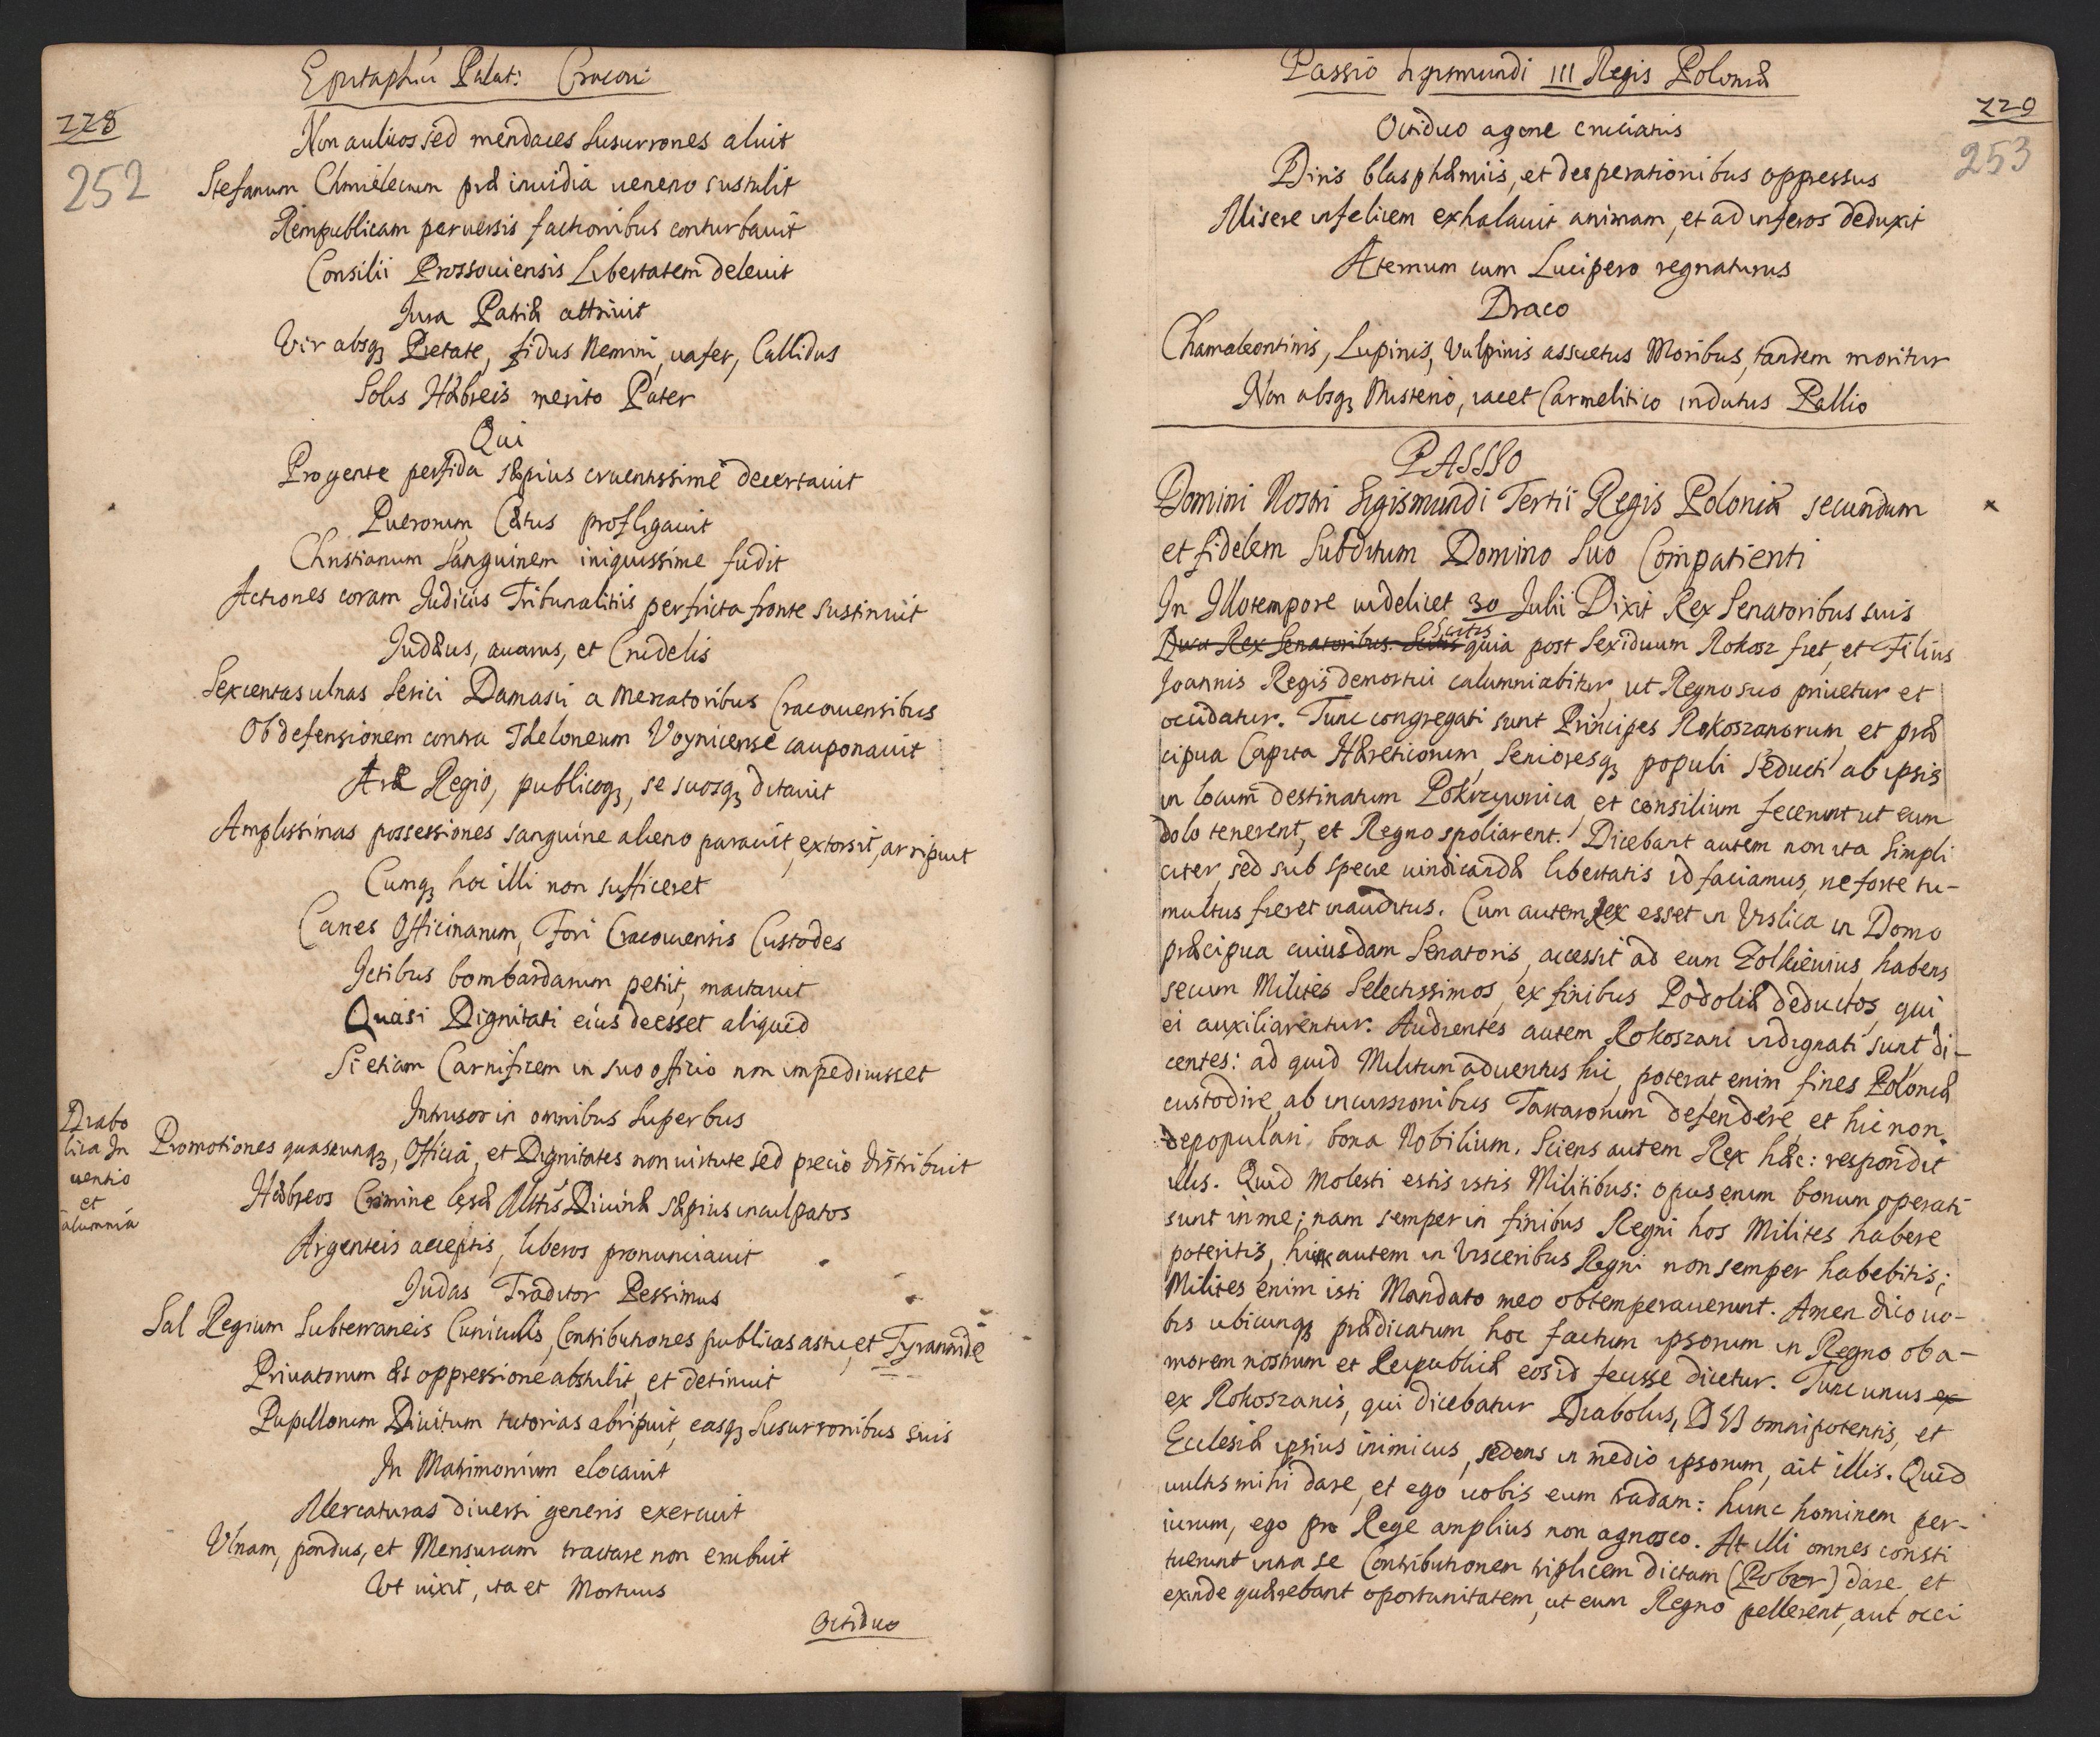 Epitaphiū Palat: Cracoui:
228
252
Non aulicos sed mendaces susurrones aluit
Stefanum Chmielecium præ inuidia ueneno sustulit
Rempublicam peruersis factionibus conturbauit
Consilii Prossouiensis Libertatem deleuit
Jura Patriæ attriuit
Vir absqȝ Pietate, fidus Nemini, uafer, Callidus
Solis Hæbreis merito Pater
Qui
Pro gente perfida sæpius cruentissimè decertauit
Puerorum Cætus profligauit
Christianum Sanguinem iniquissime fudit
Actiones coram Judiciis Tribunalitiis perfricta fronte sustinuit
Judæus, auarus, et Crudelis
Sexcentas ulnas Serici Damasci a Mercatoribus Cracouiensibus
Ob defensionem contra Theloneum Voynicense cauponauit
Ære Regio, publicoqȝ, se suosqȝ ditauit
Amplissimas possessiones sanguine alieno parauit, extorsit, arripuit
Cumqȝ hoc illi non sufficeret
Canes Officinarum, Fori Cracouiensis Custodes
Jctibus bombardarum petiit, mactauit
Quasi Dignitati eius deesset aliquid
Si etiam Carnificem in suo officio non impediuisset
Intrusor in omnibus Superbus
Diabo
lica In
uentio
et
alumnia
Promotiones quascunqȝ, Officia, et Dignitates non uirtute sed precio distribuit
Hæbreos Crimine læsæ Mttis Diuinæ sæpius inculpatos
Argenteis acceptis, liberos pronunciauit
Judas Traditor Pessimus
Sal Regium Subterraneis Cuniculis, Contributiones publicas astu, et Tyrannide
Priuatorum æs oppressione abstulit, et detinuit
Pupillorum Diuitum tutorias abripuit, easqȝ Susurronibus suis
In Matrimonium elocauit
Mercaturas diuersi generis exercuit
Vlnam, pondus, et Mensuram tractare non erubuit
Vt uixit, ita et Mortuus
Octiduo
Passio Sigismundi III Regis Poloniæ
229
253
Octiduo agone cruciatus
Diris blasphæmiis, et desperationibus oppressus
Misere infelicem exhalauit animam, et ad inferos deduxit
Æternum cum Lucipero regnaturus
Draco
Chamæleontinis, Lupinis, Vulpinis assuetus Moribus, tandem moritur
Non absqȝ Misterio, iacet Carmelitico indutus Pallio
PASSIO
Domini Nostri Sigismundi Tertii Regis Poloniæ secundum
et fidelem Subditum Domino Suo Compatienti
In Illo tempore uidelicet 30 Julii Dixit Rex Senatoribus suis
Dixit Rex Senatoribus. Scitis Scitis quia post Sexiduum Rokosz fiet, et Filius
Joannis Regis demortui calumniabitur, ut Regno suo priuetur et
occidatur. Tunc congregati sunt Principes Rokoszanorum et præ
cipua Capita Hæreticorum, Senioresqȝ populi seducti ab ipsis
in locum destinatum Pokrzywnica, et consilium fecerunt ut eum
dolo tenerent, et Regno spoliarent. Dicebant autem non ita Simpli
citer, sed sub specie uindicandæ libertatis id faciamus, ne forte tu-
multus fieret inauditus. Cum autem Rex esset in Vislica in Domo
præcipua cuiusdam Senatoris, accessit ad eum Zolkieuius habens
secum Milites Selectissimos, ex finibus Podoliæ deductos, qui
ei auxiliarentur. Audientes autem Rokoszani indignati sunt di-
centes: ad quid Militum aduentus hic, poterat enim fines Poloniæ
custodire, ab incursionibus Tartarorum defendere, et hic non
depopulari bona Nobilium. Sciens autem Rex hæc: respondit
illis. Quid Molesti estis istis Militibus: opus enim bonum operati
sunt in me; nam semper in finibus Regni hos Milites habere
poteritis, hic autem in Visceribus Regni non semper habebitis;
Milites enim isti Mandato meo obtemperauerunt. Amen dico uo-
bis ubicunqȝ prædicatum hoc factum ipsorum in Regno ob a-
morem nostrum et Reipublicæ eos id fecisse dicetur. Tunc unus ex
ex Rokoszanis, qui dicebatur Diabolus, DEI omnipotentis, et
Ecclesiæ ipsius inimicus, sedens in medio ipsorum, ait illis. Quid
uultis mihi dare, et ego uobis eum tradam: hunc hominem per-
iurum, ego pro Rege amplius non agnosco. At illi omnes consti
tuerunt intra se Contributionem triplicem dictam (Pobor) dare, et
exinde quærebant oportunitatem, ut eum Regno pellerent, aut occi